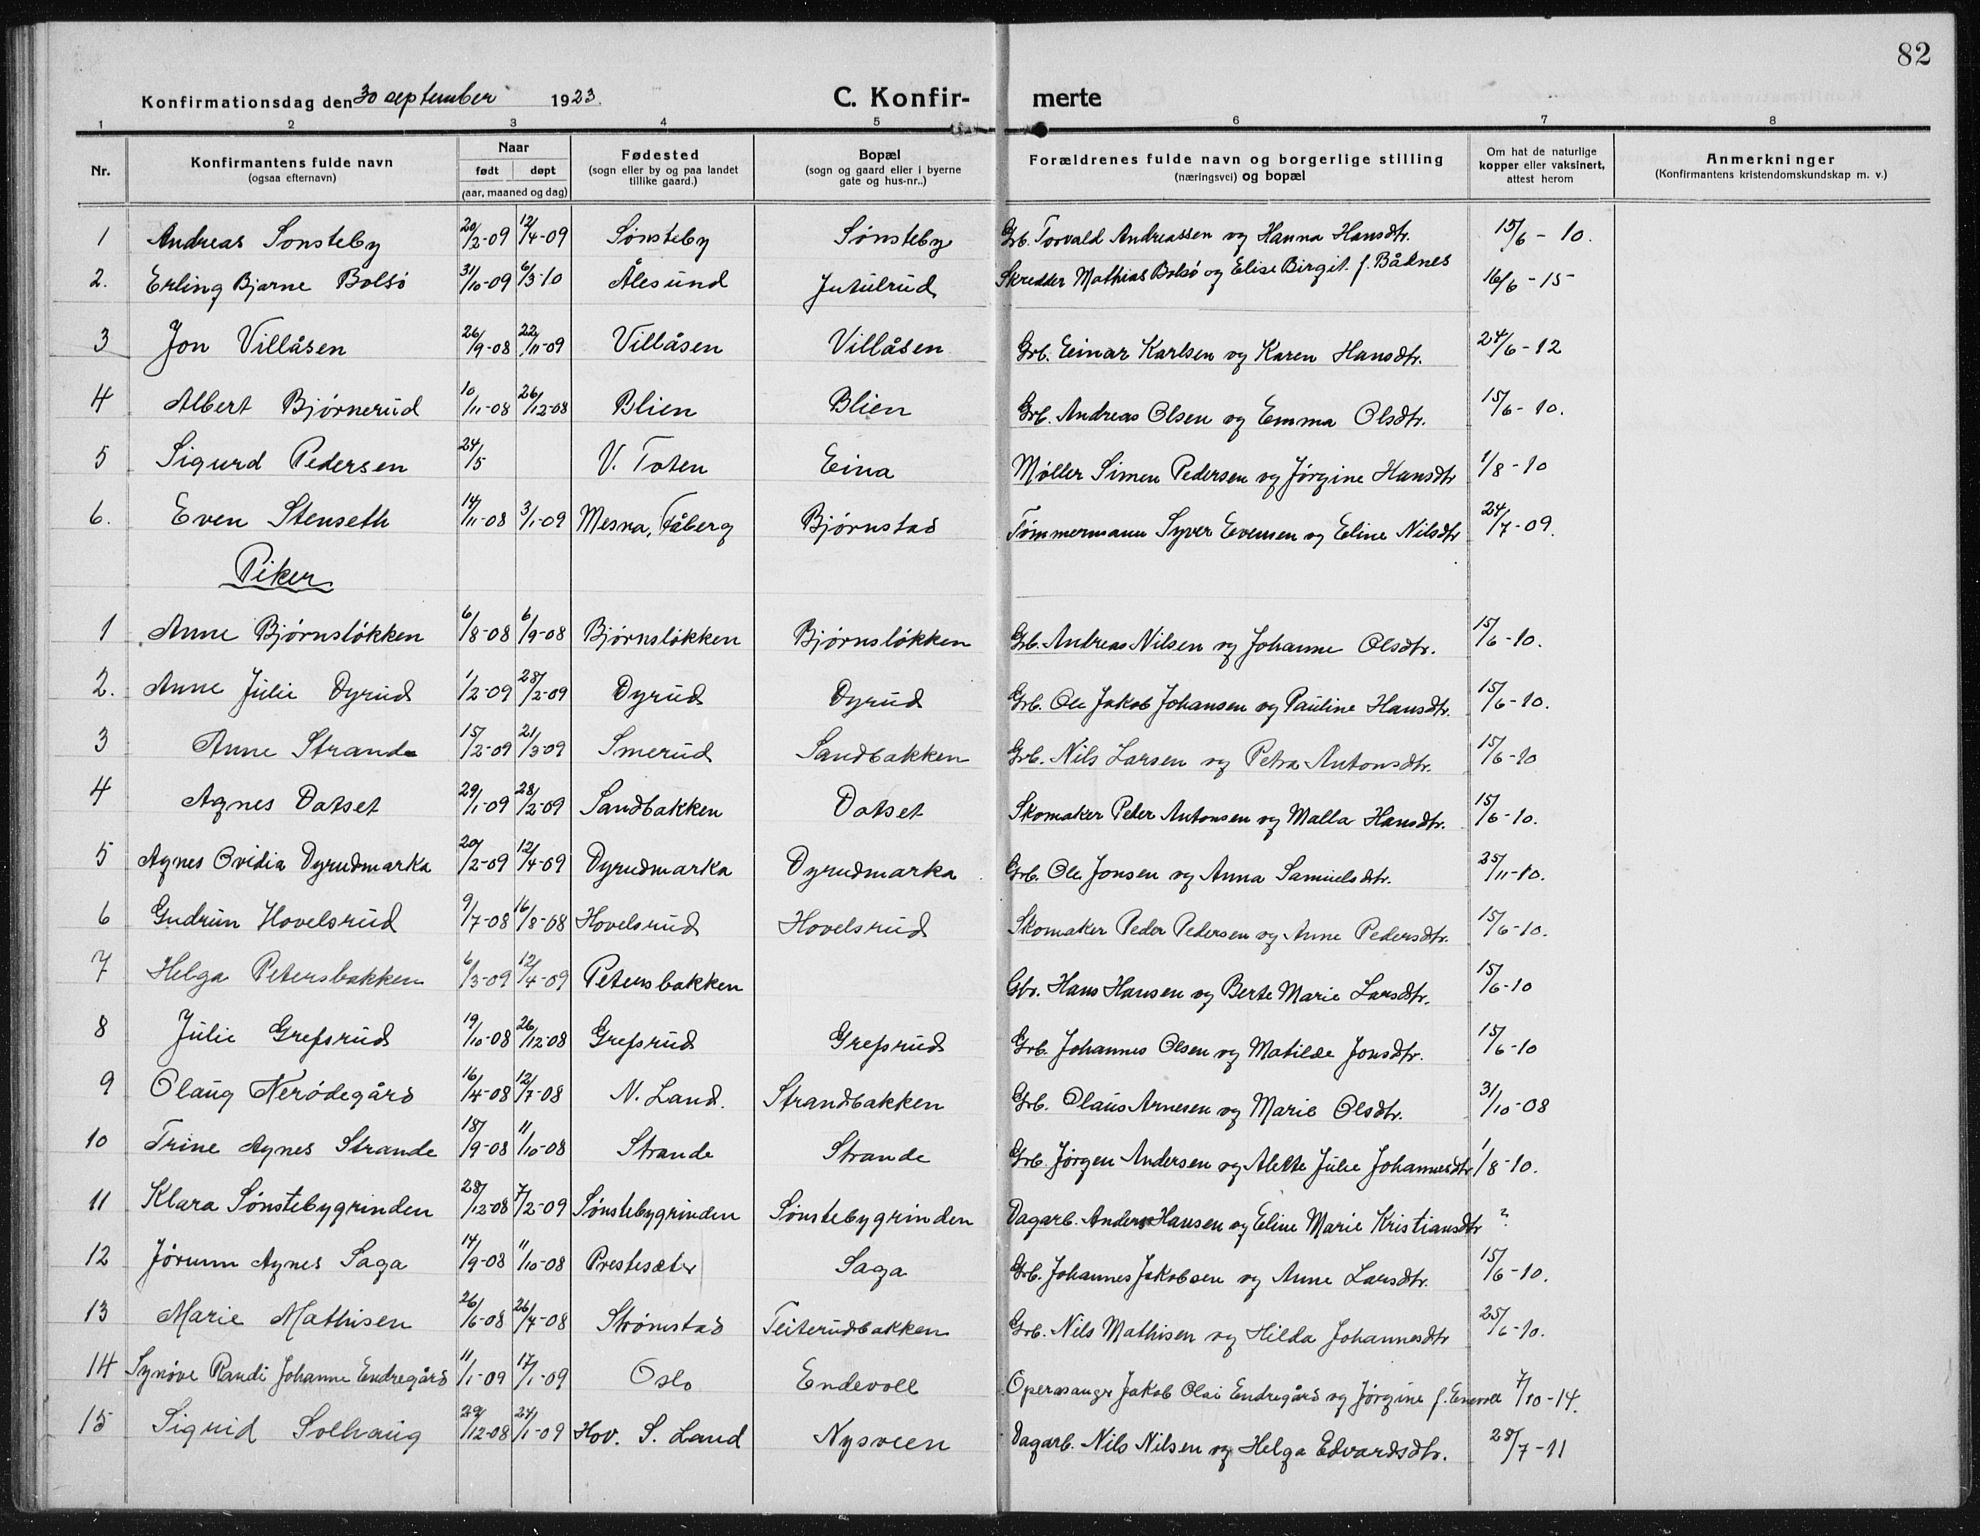 82
Konfirmationsdag den 30 september 1923. C. Konfir- merte
1 2 3 4 5 6 7 8
Nr. Konfirmantens fulde navn (ogsaa efternavn) Naar født døpt (aar, maaned og dag) Fødested (sogn eller by og paa landet tillike gaard.) Bopæl (sogn og gaard eller i byerne gate og hus-nr..) Forældrenes fulde navn og borgerlige stilling (næringsvei) og bopæl Om hat de naturlige kopper eller vaksinert, attest herom Anmerkninger (Konfirmantens kristendomskundskap m. v.)
1 Andreas Sønsteby 20/2-09 12/4-09 Sønsteby Sønsteby Grb. Torvald Andreassen og Hanna Hansdtr. 15/6 - 10.
2. Erling Bjarne Bolsø 31/10-09 6/3-10 Ålesund Jutulrud Skredder Mathias Bolsø og Elise Birgit f. Båknes 16/6 - 15
3 Jon Villåsen 26/9-08 22/11-09 Villåsen Villåsen Grb. Einar Karlsen og Karen Hansdtr. 24/6 - 12
4 Albert Bjørnerud 10/11-08 26/12-08 Blien Blien Grb. Andreas Olsen og Emma Olsdtr. 15/6 - 10.
5 Sigurd Pedersen 24/5 V. Toten Eina Møller Simen Pedersen og Jørgine Hansdtr 1/8 - 10
6. Even Stenseth 14/11-08 3/1-09 Mesna, Fåberg Bjørnstad Tømmermann Syver Evensen og Eline Nilsdtr 24/7 - 09.
Piker
1 Anne Bjørnsløkken 6/8-08 6/9-08 Bjørnsløkken Bjørnsløkken Grb. Andreas Nilsen og Johanne Olsdtr. 15/6 - 10.
2. Anne Julie Dyrud 1/2-09 28/2-09 Dyrud Dyrud Grb. Ole Jakob Johansen og Pauline Hansdtr. 15/6 - 10.
3 Anne Strande 15/2-09 21/3-09 Smerud Sandbakken Grb. Nils Larsen og Petra Antonsdtr. 15/6 - 10
4 Agnes Datset 29/1-09 28/2-09 Sandbakken Datset Skomaker Peder Antonsen og Malla Hansdtr. 15/6 - 10.
5 Agnes Ovidia Dyrudmarka 20/2-09 12/4-09 Dyrudmarka Dyrudmarka Grb. Ole Jonsen og Anna Samuelsdtr. 25/11-10.
6 Gudrun Hovelsrud 9/7-08 16/8-08 Hovelsrud Hovelsrud Skomaker Peder Pedersen og Anne Pedersdtr. 15/6-10.
7 Helga Petersbakken 6/3-09 12/4-09 Petersbakken Gbr. Hans Hansen og Berte Marie Larsdtr. 15/6-10
8 Julie Grefsrud 19/10-08 26/12-08 Grefsrud Grefsrud Grb. Johannes Olsen og Matilde Jonsdtr. 15/6-10
9 Olaug Nerødegård 16/4-08 12/7-08 N. Land. Strandbakken Grb. Olaus Arnesen og Marie Olsdtr. 31/10-08
10 Trine Agnes Strande 18/9-08 11/10-08 Strande Strande Grb. Jørgen Andersen og Alette Julie Johannesdtr 1/8-10.
11 Klara Sønstebygrinden 28/12-08 7/2-09 Sønstebygrinden Sønstebygrinden Dagarb. Anders Hansen og Eline Marie Kristiansdtr ?
12 Jørunn Agnes Saga 14/9-08 11/10-08 Prestesæter Saga Grb. Johannes Jakobsen og Anne Larsdtr. 15/6-10.
13 Marie Mathisen 26/6-08 26/7-08 Strømstad Teiterudbakken Grb. Nils Mathisen og Hilda Johannesdtr 25/6-10.
14 Synøve Randi Johanne Endregård 11/1-09 17/1-09 Oslo Endevoll Operasanger Jakob Olai Endregård og Jørgine f. Enevoll 7/10-14.
15 Sigrid Solhaug 29/12-08 24/1-09 Hov. S. Land Nysveen Dagarb. Nils Nilsen og Helga Edvardsdtr. 28/7-11